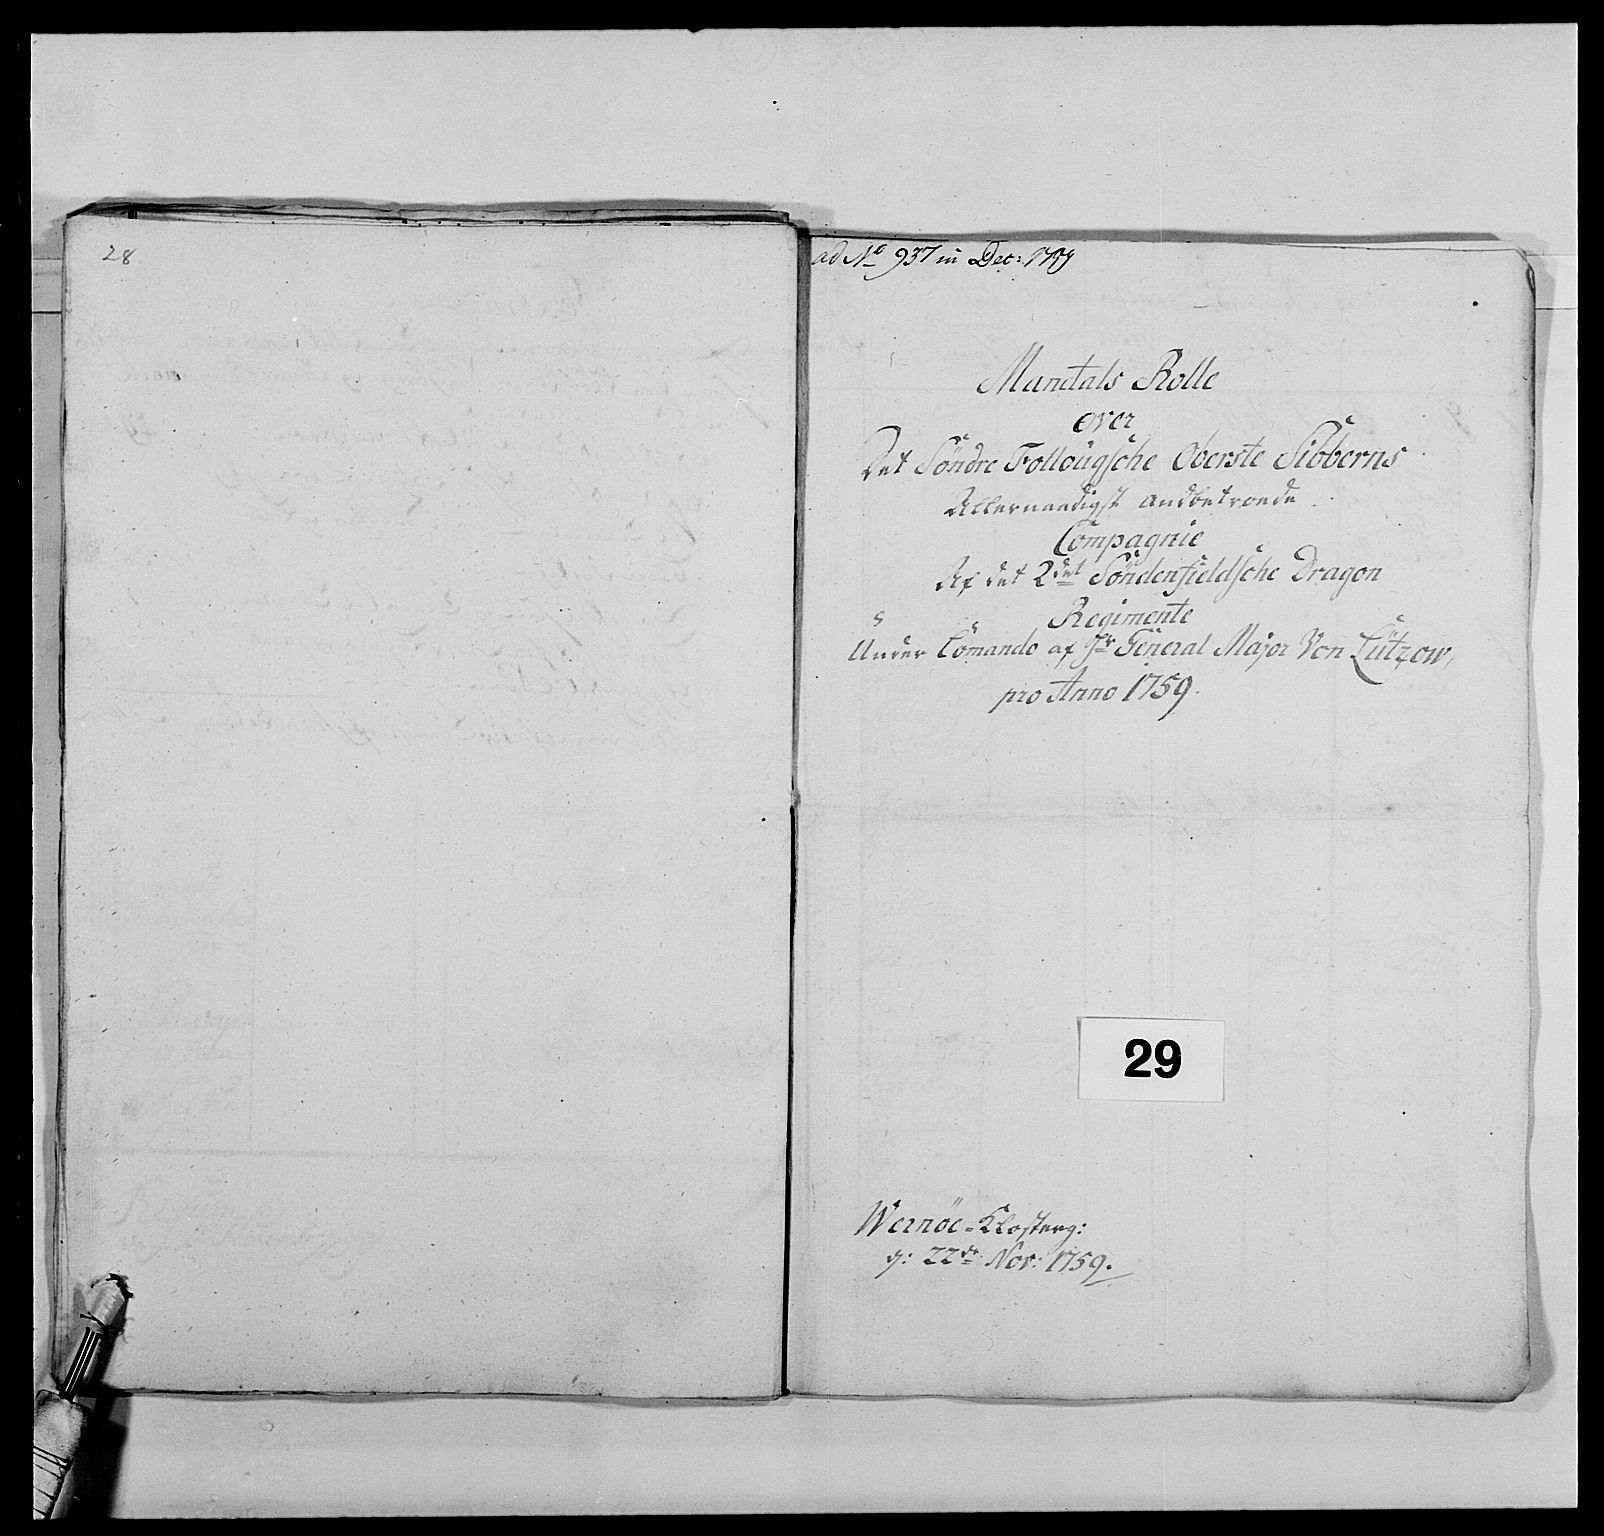 28
ad No 937 in Dec: 1759
Mandtals Rolle
over
Det Söndre Follougsche Oberste Sibberns
Allernaadigst andbetroede
Compagnie
Af det 2det Söndenfieldsche Dragon
Regimente
Under Comando af Hr General Major Von Lützow,
pro Anno 1759.
29
Wernöe-Klosterg:
d: 22de Nov: 1759.